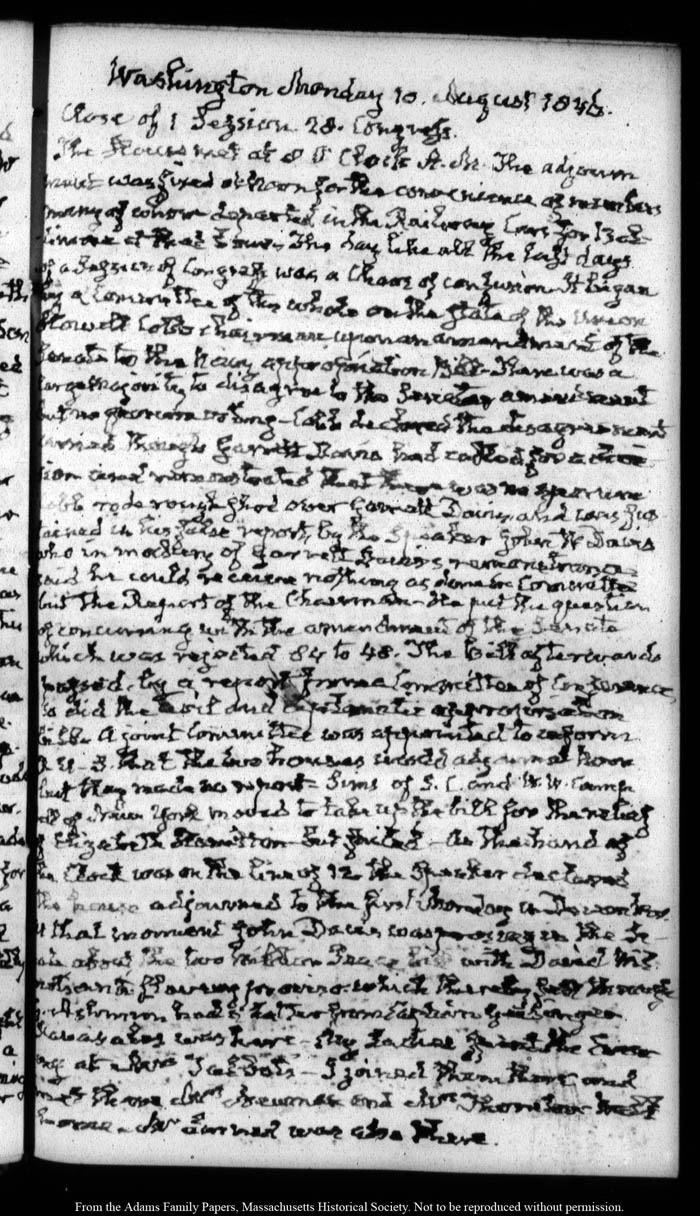 Washington Monday 10. August 1846.
Close of 1 Session 28. Congress.
The House met at 8 O'Clock A.M. The adjourn
ment was fixed at Noon for the convenience of members
many of whom departed in the Railway Cars for Balt
imore at that hour. The day like all the last days
of a Session of Congress was a Chaos of confusion. It began
by a Committee of the whole on the State of the Union
Howell Cobb chairman upon an amendment of the
Senate to the Navy appropriation Bill. There was a
large majority to disagree to the Senate amendment
but no quorum voting. Cobb declared the disagreement
carried though Garrett Davis had called for a
sion and remonstrated that there was no quorum
Cobb rode rough shod over Garrett Davis, and was sus
tained in his false report, by the Speaker John W Davis
who in mockery of Garrett Davis's remonstrance
said he could receive nothing as done in Committee
but the Report of the Chairman. He put the question
of concurring with the amendment of the Senate
which was rejected 84 to 48. The Bill afterwards
passed, by a report from a Committee of Conference,
so did the Civil and diplomatic appropriation
bill. A joint Committee was appointed to inform
that the two houses would adjourn at Noon
but they made no report. Sims of S.C. and W. W. Camp
ell of New York moved to take up the bill for the relief
of Elizabeth Hamilton but failed. As the hand of
the Clock was on the line of 12 the Speaker declared
the house adjourned to the first Monday in December.
At that moment John Davis was in the Se
nate about the two million bill with David Wil
mot's proviso which
Ashmun had a letter from
was here. My
at I joined them there and
there Mrs and Mrs Thornton
home. Mr was also there.
From the Adams Family Papers, Massachusetts Historical Society. Not to be reproduced without permission.